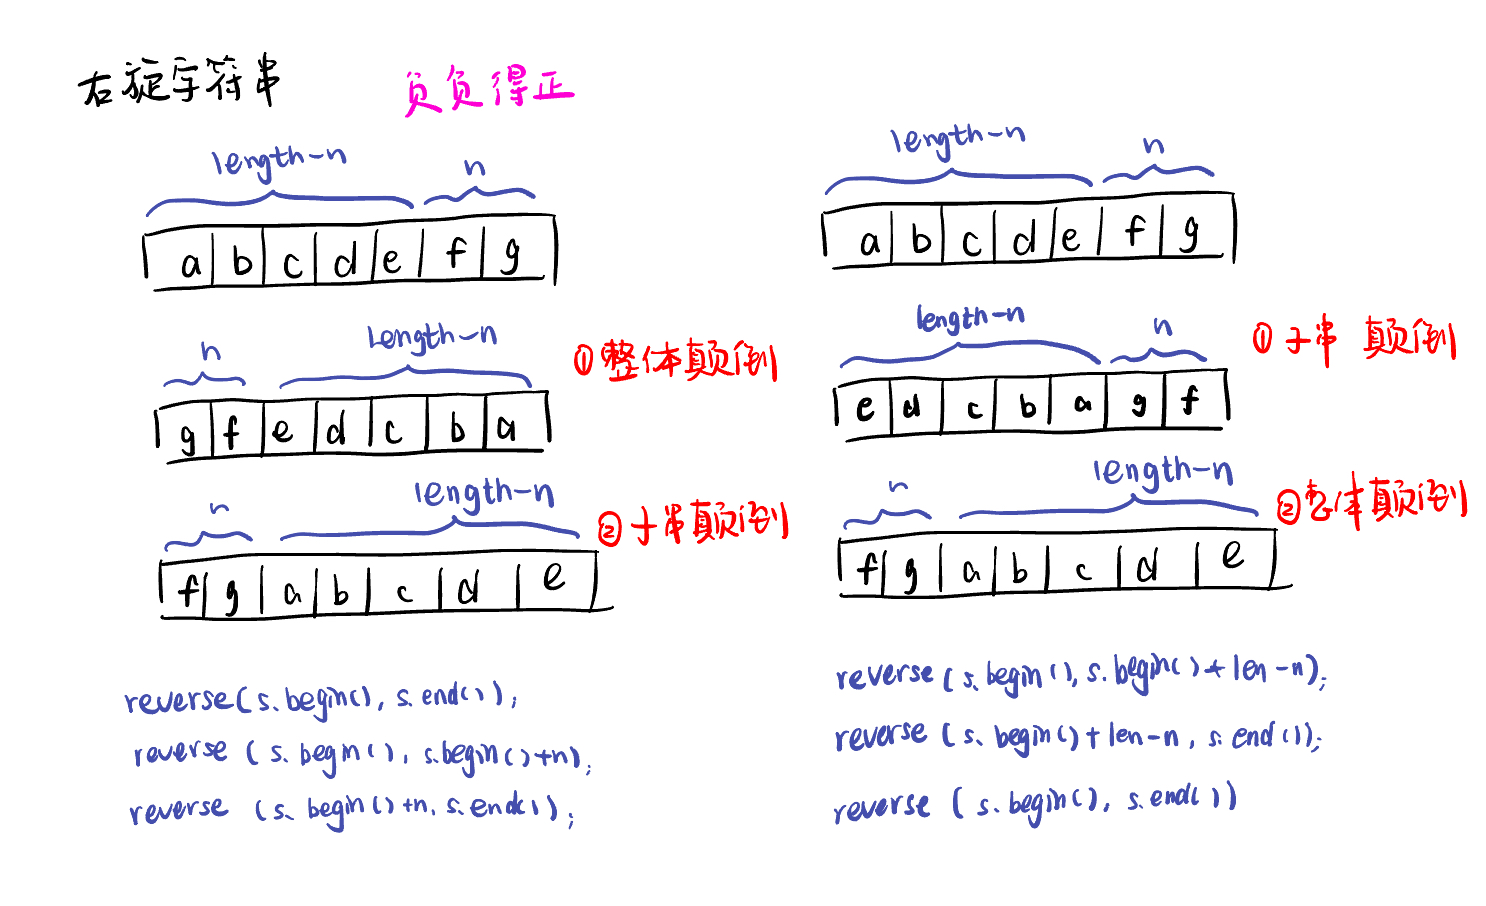 右旋字符串 负负得正
length-n n
a b c d e f g
n Length-n
①整体颠倒
g f e d c b a
n length-n
②子串颠倒
f g a b c d e
reverse(s.begin(), s.end());
reverse (s.begin(), s.begin()+n);
reverse (s.begin()+n, s.end());
length-n n
a b c d e f g
length-n n
①子串 颠倒
e d c b a g f
n length-n
②整体颠倒
f g a b c d e
reverse (s.begin(), s.begin()+len-n);
reverse (s.begin()+len-n, s.end());
reverse (s.begin(), s.end())